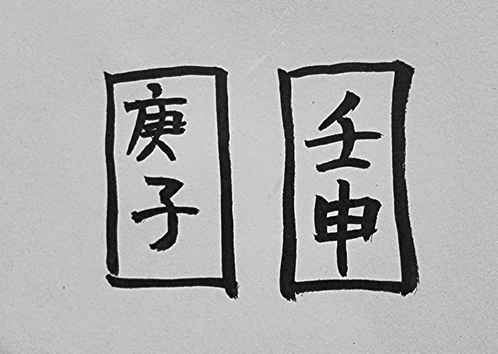 壬申
庚子